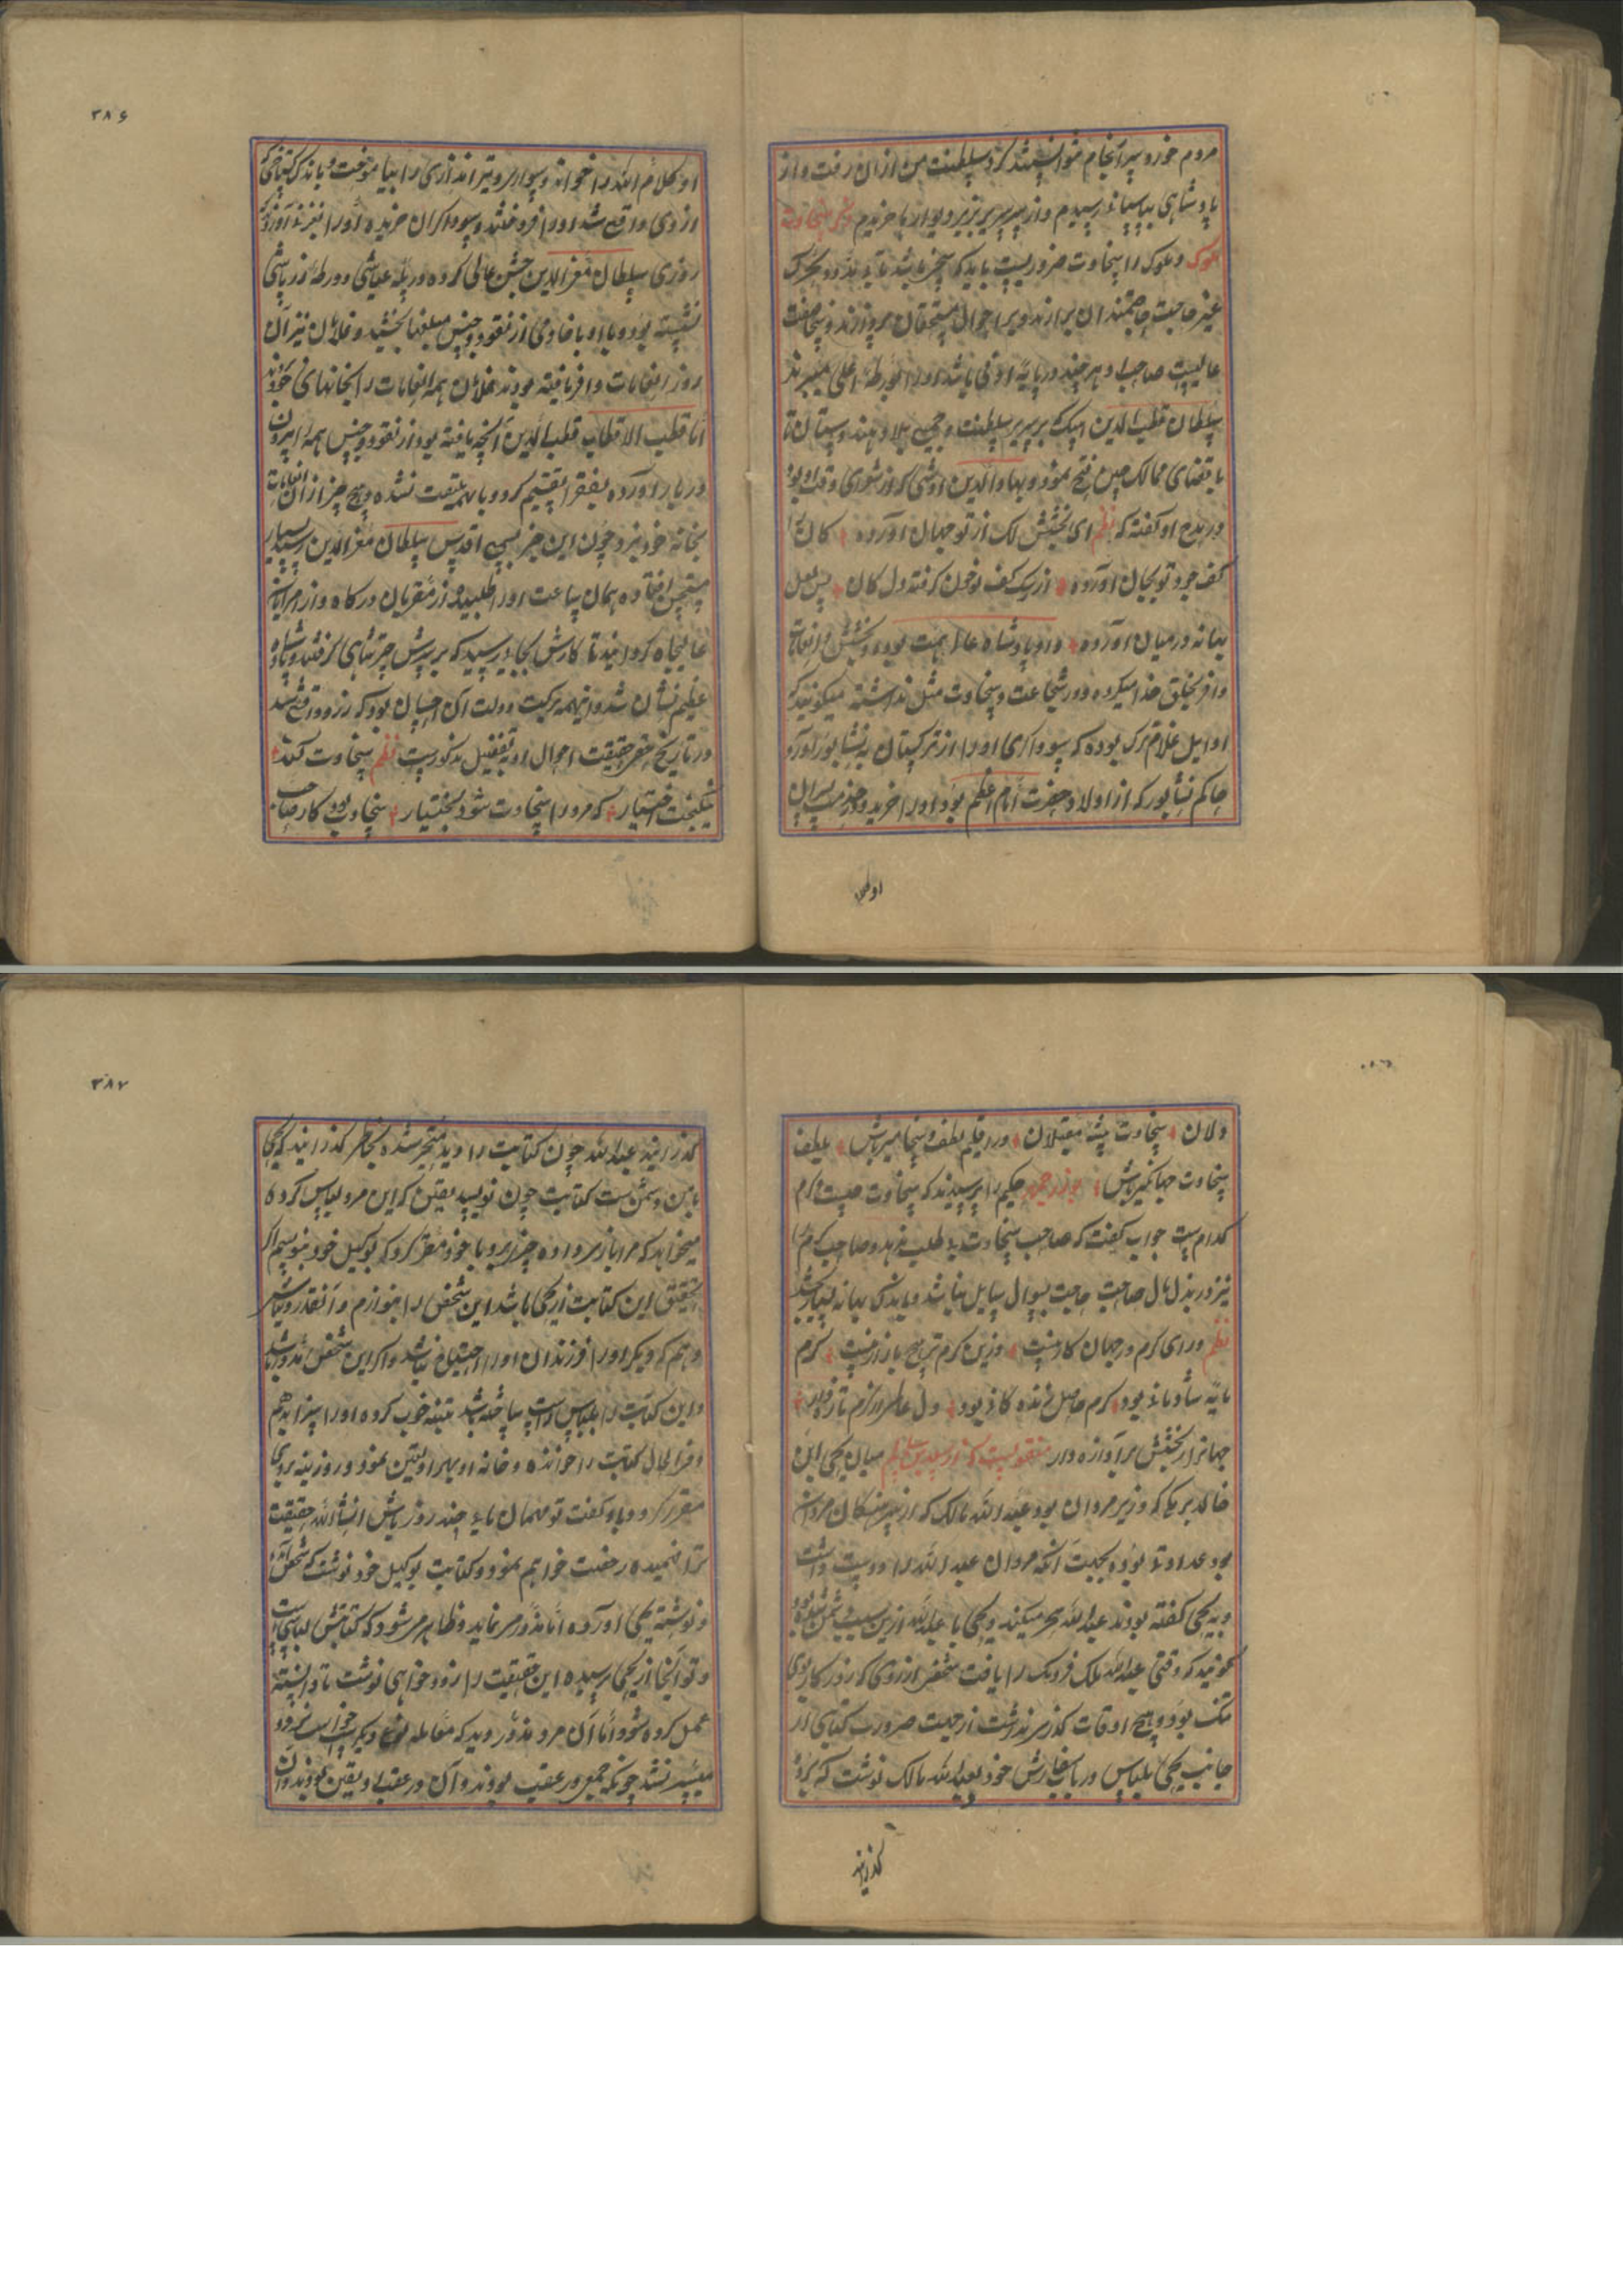 مردم خورد سرانجام نتوانستند کرد سلطنت من ازان رفت و از
پادشاهی بیاسبانی رسیدم و از سریر بزیر دیوارها خزیدم ذکر سخاوت
ملوک و ملوک را سخاوت ضروریست باید که سخی باشد
غیر حاجت حاجتمندان برارند و بر احوال مستحقان پردازند و سخا صفت
عالیست صاحب او هر چند در پایه ادنی باشد او را بمرطبه اعلی میبرند
سلطان قطب الدین ایبک بر سریر سلطنت و جمیع بلاد هند و ستان تا
باقصای ممالک چین فتح نمود و بهاء الدین اوشی که از شعرای وقت او بود
در مدح او گفته که نظم ای بخشش لک از تو جهان آورده کان را
کف جود تو بجان آورده از رشک کف تو خون گرفته دل کان پس لعل
بهانه در میان آورده و او پادشاه عالی همت بود و بخشش و انعامات
وافر بخلق خدا میکرده و در شجاعت و سخاوت مثل نداشته میگویند که
اوایل غلام ترک بوده که سوداگری او را از ترکستان به نشاپور آورد
حاکم نشاپور که از اولاد حضرت امام اعظم بود او را خرید و همراه پسران
او کلام
۳۸۶
او کلام الله را خواند و سواری و تیر اندازی را بیاموخت و باندک گستاخی که
از وی واقع شد او را فروختند و سوداگران خریده او را بغزنه آوردند
روزی سلطان معز الدین جشن عالی کرده در پله عیاشی و ورطه زر پاشی
نشسته بود و با او باخادمی از نقود و جنس مبلغها بخشید و غلامان نیز آن
روز انعامات وافر یافته بودند غلامان همه انعامات را بخانهای خود بردند
اما قطب الاقطاب قطب الدین آنچه یافته بود از نقود و جنس همه را بیرون
دربار آورده بفقرا تقسیم کرد و باهل نشده و هیچ چیز از آن انعامات
بخانه خود نبرد چون این خبر بسمع اقدس سلطان معز الدین رسید بسیار
مستحسن افتاده همان ساعت او را طلبیده از مقربان درگاه و از امرایان
عالیجاه گردانید تا کارش بجای رسید که بر سرش چتر شاهی گرفتند و پادشاه
عظیم نشان شد و اینهمه برکت دولت آن احسان بود که ازو واقع شد
در تاریخ حقیقت احوال او بتفصیل مذکورست نظم سخاوت کند
نیکبخت اختیار که مرد از سخاوت شود بختیار سخاوت بود کار صاحب
دلان سخاوت پیشه مقبلان در اقلیم لطف و سخا میر باش بلطف
سخاوت جهانگیر باش بوزرجمهر حکیم را پرسیدند که سخاوت چیست و کرم
کدامست جواب گفت که صاحب سخاوت بی طلب ندهد و صاحب کرم را
نیز در بذل مال صاحب حاجت بسوال سایل نباشد و باندک بهانه بسیار بخشد
نظم ورای کرم در جهان کار نیست وزین کرم تر هیچ بازار نیست کرم
مایه شادمانی بود کرم حاصل زندگانی بود دل عالمی از کرم تازه دار
جهانرا ز بخشش پر آوازه دار منقولست که میان یحیی ابن
خالد برمکی که وزیر مروان بود و عبد الله مالک که از مروان
بود عداوتی بوده بجهت آنکه مروان عبد الله را دوست داشت
و به یحیی گفته بودند عبد الله سحر میکند و یحیی با عبد الله ازین سبب دشمن شده بود
گویند که وقتی عبد الله ملک را یافت شخصی از روی که روزگار بروی
تنگ بود و هیچ اوقات گذر نداشت از جهت ضرورت کتابتی از
جانب یحیی بلباس در باب سفارش خود بعبد الله مالک نوشت که نزد
گذرانید
۳۸۷
گذرانید عبد الله چون کتابت را دید متحیر شده بخاطر گذرانید که یحیی
بامن دشمنست کتابت چون نویسد یقین که این مرد لباس کرده
میخواهد که مرا بازی داده چیز برد با خود مقرر کرد که بوکیل خود بنویسم اگر
تحقیق این کتابت از یحیی باشد این شخص را بنوازم و آنقدر
دهم که دیگر او را و فرزندان او را احتیاج نباشد و اگر این شخص
و این کتابت را بلباس ساخته باشد تنبیه خوب کرده او را سزا بدهم
و فی الحال کتابت را خوانده و خانه او بهر او تعین نمود و روزینه بروی
مقرر کرد و باو گفت تو مهمان مایی چند روز باش انشاء الله حقیقت
ترا فهمیده رخصت خواهم نمود و کتابت بوکیل خود نوشت که شخصی آمده
و نوشته یحیی آورده اما مزور مینماید و ظاهر میشود که کتابتش لباسی است
و تو آنجا از یحیی پرسیده این حقیقت را زود خواهی نوشت تا دانسته
عمل کرده شود اما آن مرد مزور دید که معامله نوع دیگر
میسر نشد چونکه جمعی در عقب بودند و آن در عقب او تعین نمودند